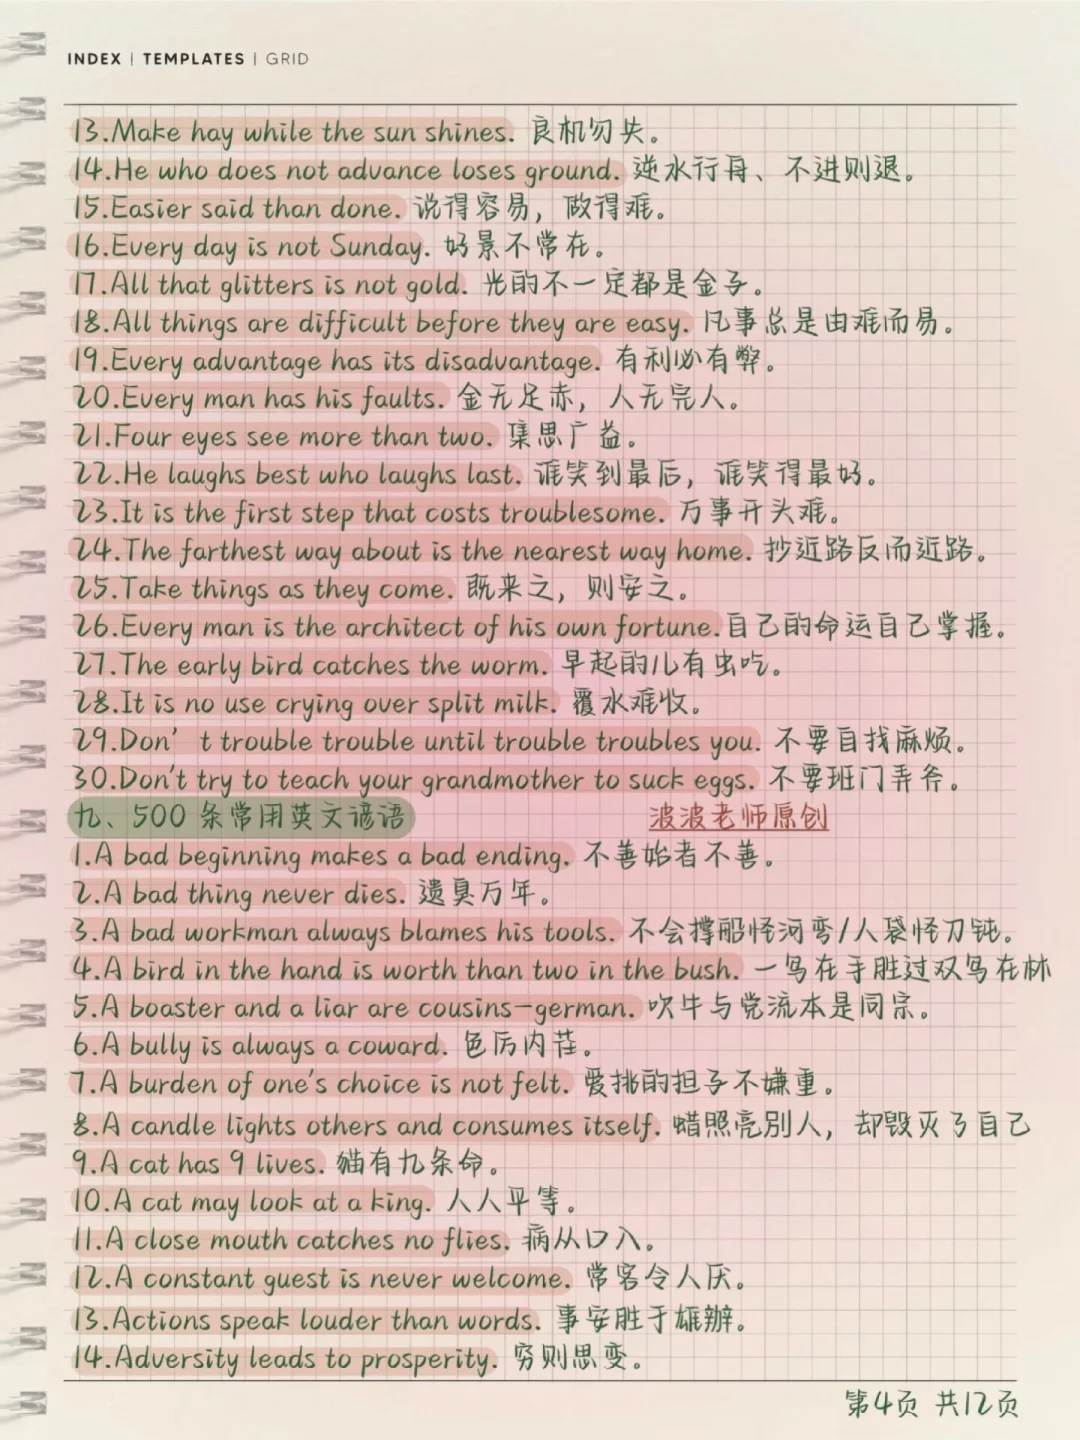 INDEX | TEMPLATES | GRID
13.Make hay while the sun shines. 良机勿失。
14.He who does not advance loses ground. 逆水行舟、不进则退。
15.Easier said than done. 说得容易，做得难。
16.Every day is not Sunday. 好景不常在。
17.All that glitters is not gold. 光的不一定都是金子。
18.All things are difficult before they are easy. 凡事总是由难而易。
19.Every advantage has its disadvantage. 有利必有弊。
20.Every man has his faults. 金无足赤，人无完人。
21.Four eyes see more than two. 集思广益。
22.He laughs best who laughs last. 谁笑到最后，谁笑得最好。
23.It is the first step that costs troublesome. 万事开头难。
24.The farthest way about is the nearest way home. 抄近路反而近路。
25.Take things as they come. 既来之，则安之。
26.Every man is the architect of his own fortune.自己的命运自己掌握。
27.The early bird catches the worm. 早起的儿有虫吃。
28.It is no use crying over split milk. 覆水难收。
29.Don’t trouble trouble until trouble troubles you. 不要自找麻烦。
30.Don't try to teach your grandmother to suck eggs. 不要班门弄斧。
九、500 条常用英文谚语 波波老师原创
1.A bad beginning makes a bad ending. 不善始者不善。
2.A bad thing never dies. 遗臭万年。
3.A bad workman always blames his tools. 不会撑船怪河弯/人袋怪刀钝。
4.A bird in the hand is worth than two in the bush. 一鸟在手胜过双鸟在林
5.A boaster and a liar are cousins-german. 吹牛与党流本是同宗。
6.A bully is always a coward. 色厉内荏。
7.A burden of one's choice is not felt. 爱挑的担子不嫌重。
8.A candle lights others and consumes itself. 蜡照亮别人，却毁灭了自己
9.A cat has 9 lives. 猫有九条命。
10.A cat may look at a king. 人人平等。
11.A close mouth catches no flies. 病从口入。
12.A constant guest is never welcome. 常客令人厌。
13.Actions speak louder than words. 事安胜于雄辩。
14.Adversity leads to prosperity. 穷则思变。
第4页 共12页